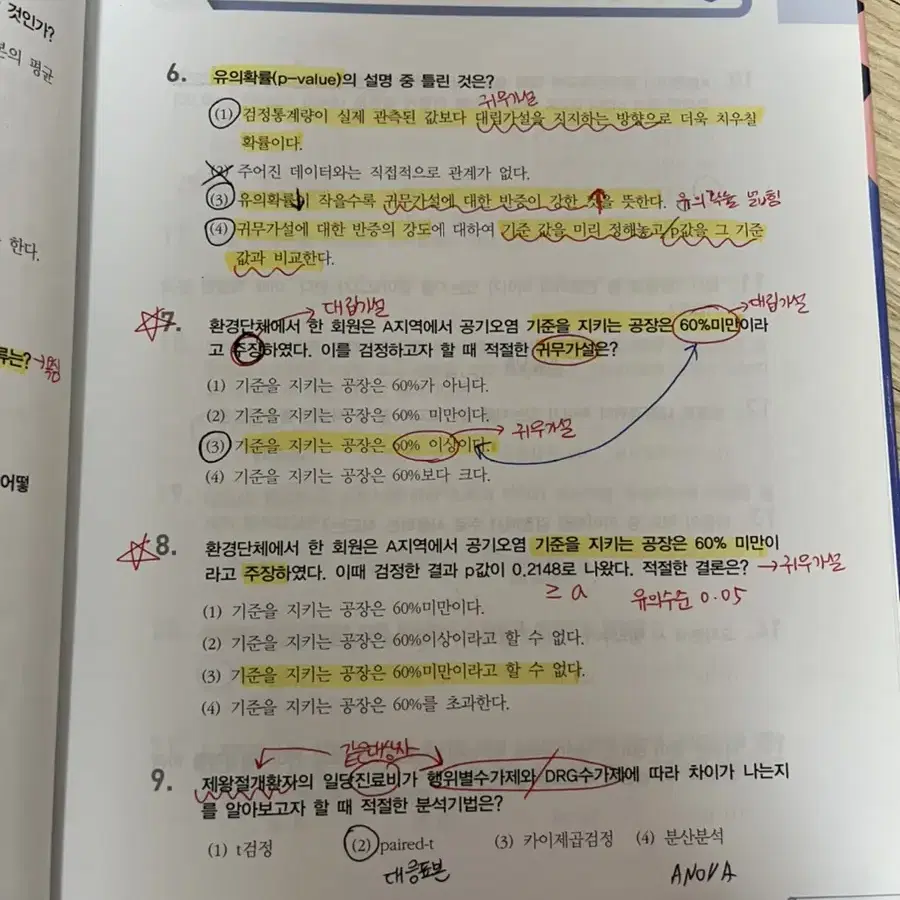 것인가?
본의 평균
한다.
류는?
어떻
6. 유의확률(p-value)의 설명 중 틀린 것은?
귀무가설
(1) 검정통계량이 실제 관측된 값보다 대립가설을 지지하는 방향으로 더욱 치우칠
확률이다.
(2) 주어진 데이터와는 직접적으로 관계가 없다.
(3) 유의확률이 작을수록 귀무가설에 대한 반증이 강한 것을 뜻한다. 유의확률
(4) 귀무가설에 대한 반증의 강도에 대하여 기준 값을 미리 정해놓고 p값을 그 기준
값과 비교한다.
대립가설
대립가설
7. 환경단체에서 한 회원은 A지역에서 공기오염 기준을 지키는 공장은 60%미만이라
고 주장하였다. 이를 검정하고자 할 때 적절한 귀무가설은?
(1) 기준을 지키는 공장은 60%가 아니다.
(2) 기준을 지키는 공장은 60% 미만이다.
(3) 기준을 지키는 공장은 60% 이상이다. 귀무가설
(4) 기준을 지키는 공장은 60%보다 크다.
8. 환경단체에서 한 회원은 A지역에서 공기오염 기준을 지키는 공장은 60% 미만이
라고 주장하였다. 이때 검정한 결과 p값이 0.2148로 나왔다. 적절한 결론은? → 귀무가설
≥ a 유의수준 0.05
(1) 기준을 지키는 공장은 60%미만이다.
(2) 기준을 지키는 공장은 60%이상이라고 할 수 없다.
(3) 기준을 지키는 공장은 60%미만이라고 할 수 없다.
(4) 기준을 지키는 공장은 60%를 초과한다.
같은대상자
9. 제왕절개환자의 일당진료비가 행위별수가제와 DRG수가제에 따라 차이가 나는지
를 알아보고자 할 때 적절한 분석기법은?
(1) t검정 (2) paired-t (3) 카이제곱검정 (4) 분산분석
대응표본 ANOVA